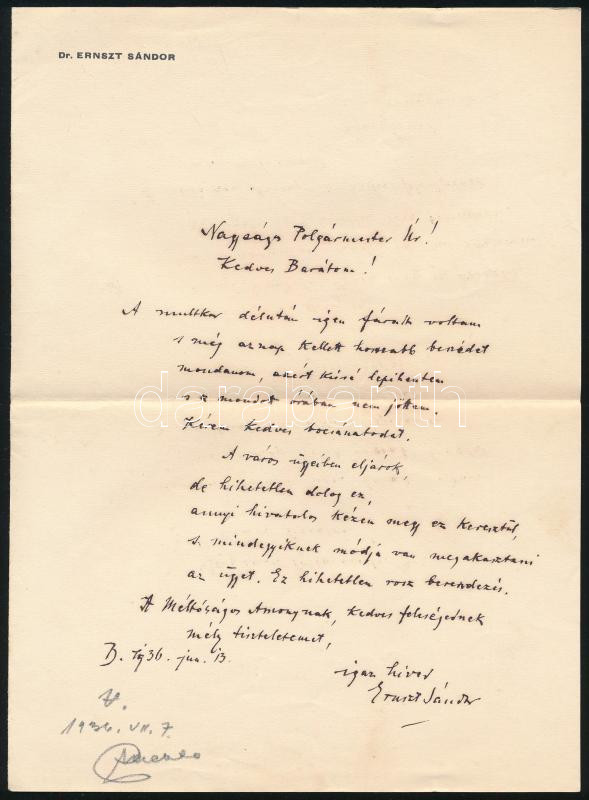 Dr. ERNSZT SÁNDOR
Nagyságos Polgármester Úr!
Kedves Barátom!
A multkor délután igen fáradt voltam
s még aznap kellett hosszabb beszédet
mondanom, azért kissé lepihentem
s a mondott órában nem jöttem.
Kérem kedves bocsánatodat.
A város ügyeiben eljárok,
de hihetetlen dolog ez,
annyi hivatalos kézen megy ez keresztül,
s mindegyiknek módja van megakasztani
az ügyet. Ez hihetetlen rosz berendezés.
A Méltóságos Asszonynak, kedves feleségednek
mély tiszteletemet,
B. 1936. jun. 13.
igaz híved
Ernszt Sándor
1936. VII. 7.
darabanth